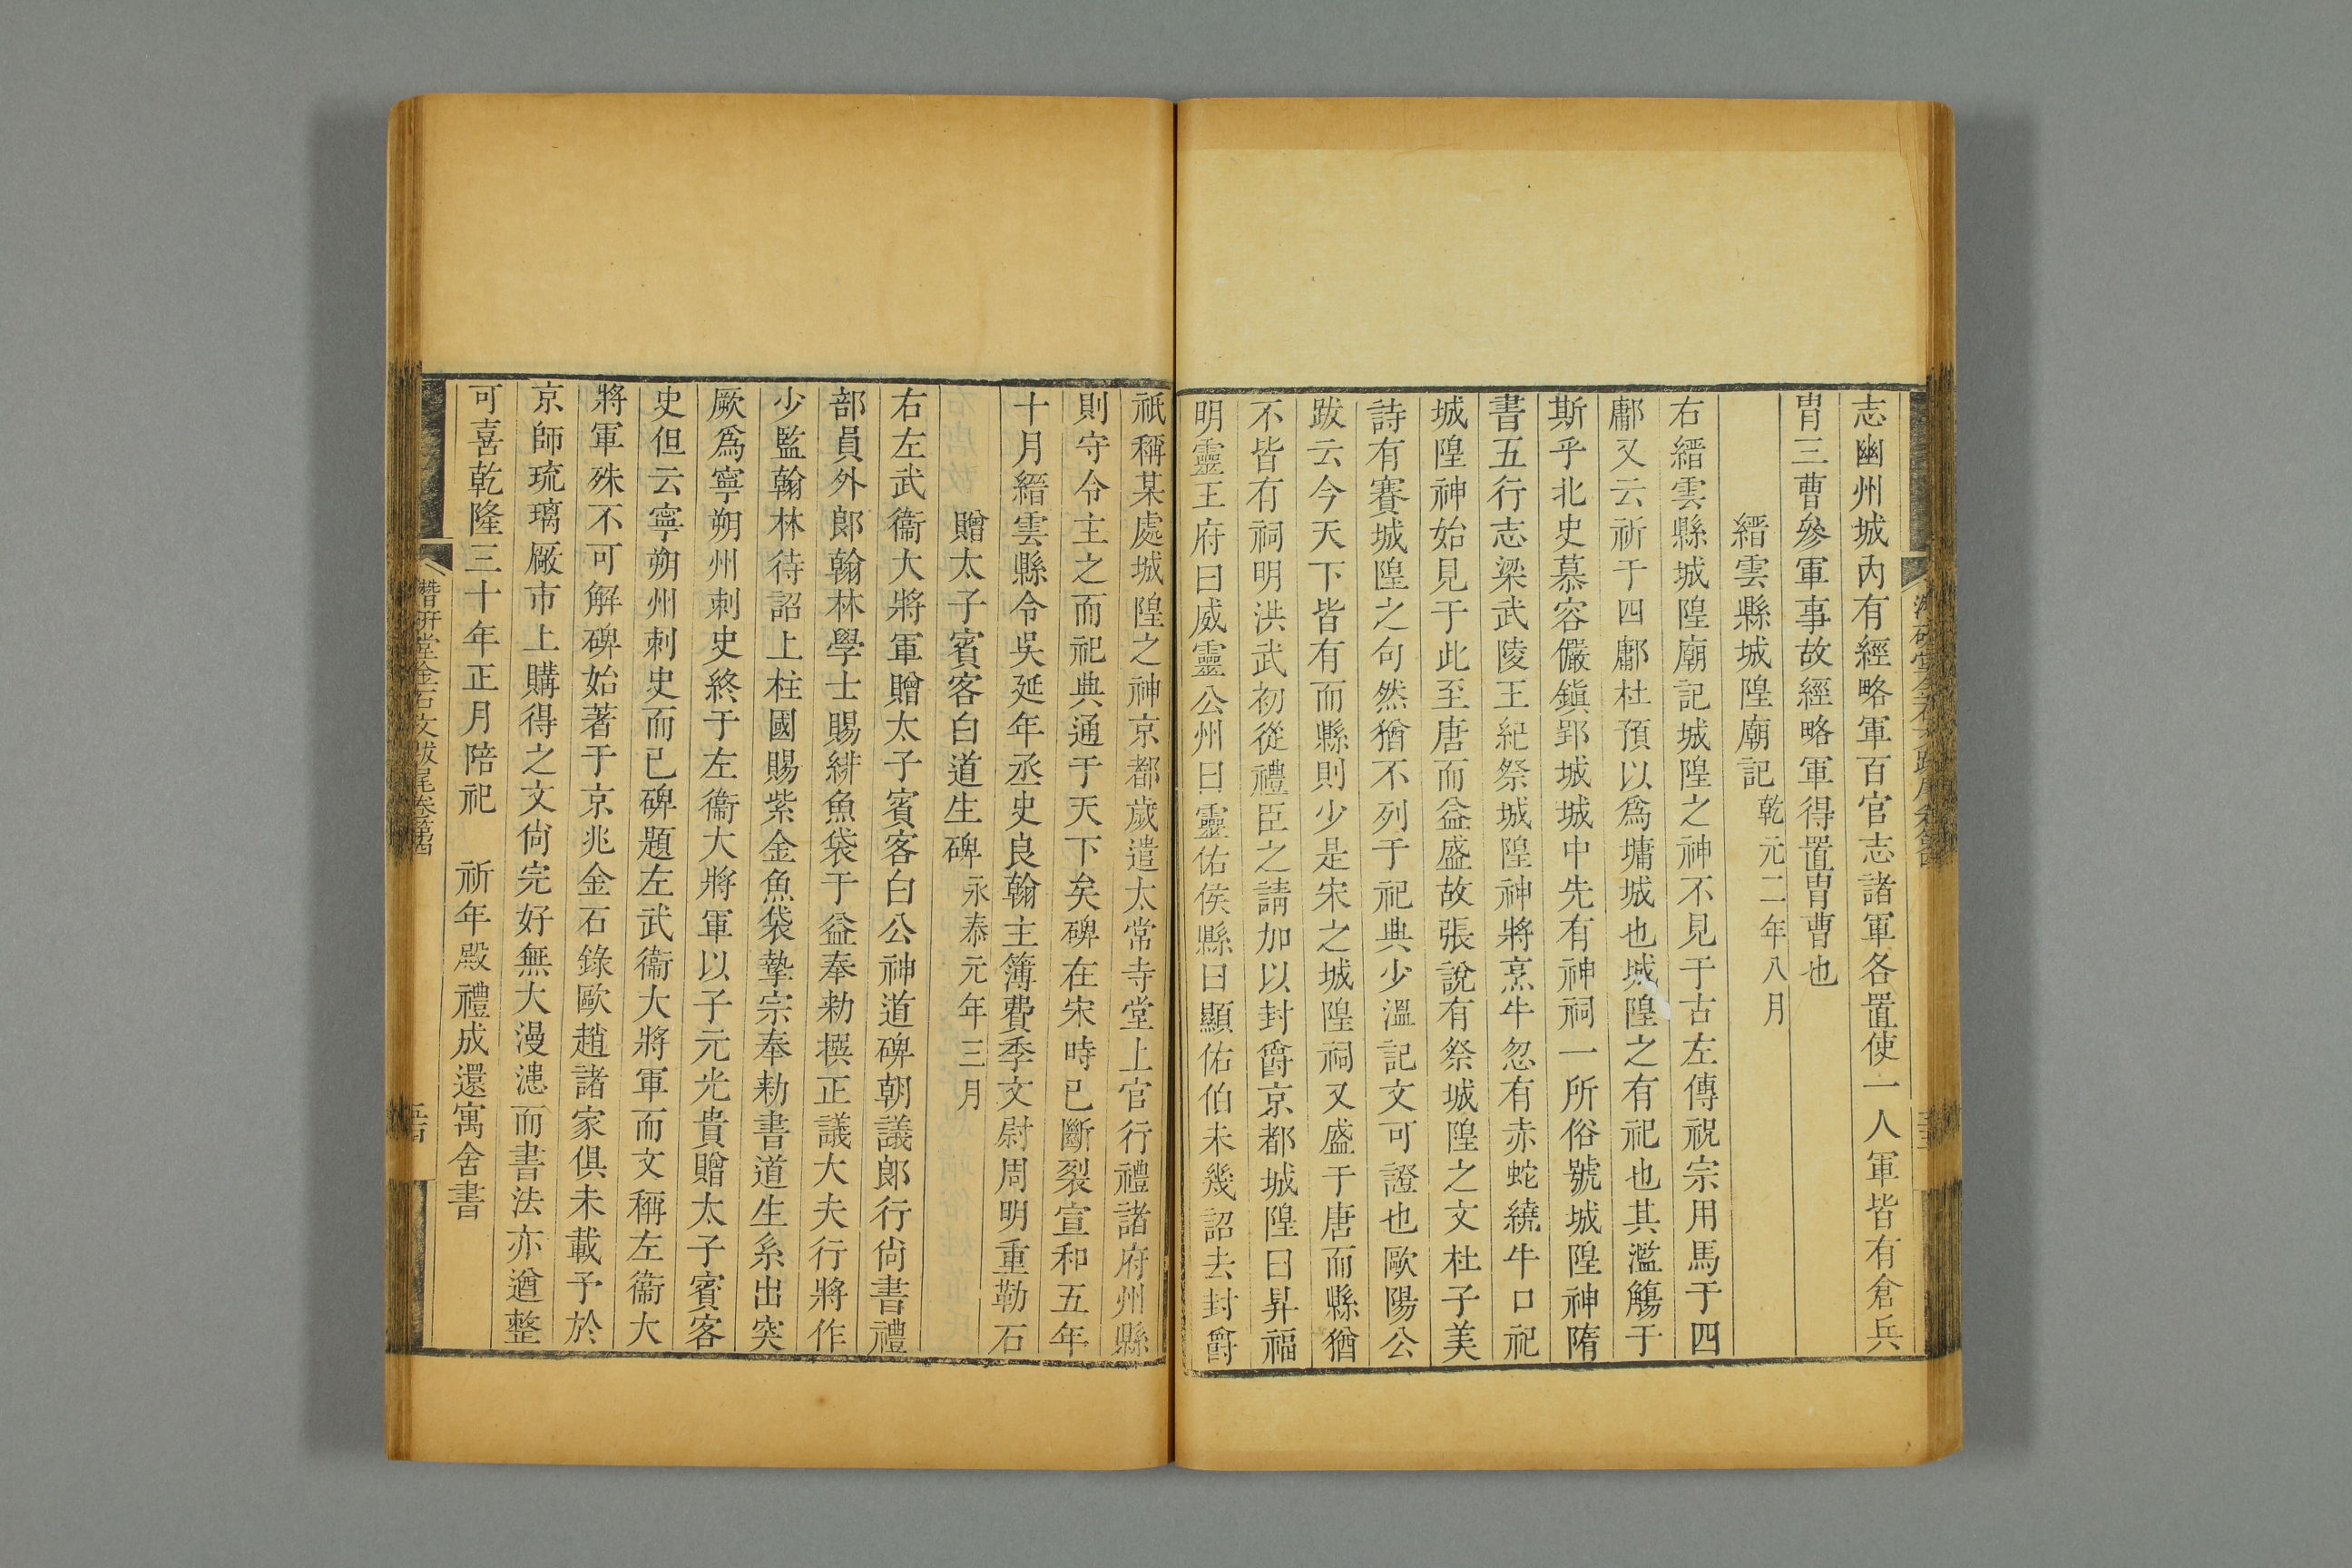 志幽州城內有經略軍百官志諸軍各置使一人軍皆有倉兵
胄三曹參軍事故經略軍得置胄曹也
縉雲縣城隍廟記 乾元二年八月
右縉雲縣城隍廟記城隍之神不見于古左傳祝宗用馬于四
鄘又云祈于四鄘杜預以爲墉城也城隍之有祀也其濫觴于
斯乎北史慕容儼鎮郢城城中先有神祠一所俗號城隍神隋
書五行志梁武陵王紀祭城隍神將烹牛忽有赤蛇繞牛口祀
城隍神始見于此至唐而益盛故張說有祭城隍之文杜子美
詩有賽城隍之句然猶不列于祀典少溫記文可證也歐陽公
跋云今天下皆有而縣則少是宋之城隍祠又盛于唐而縣猶
不皆有祠明洪武初從禮臣之請加以封爵京都城隍曰昇福
明靈王府曰威靈公州曰靈佑侯縣曰顯佑伯未幾詔去封爵
祇稱某處城隍之神京都歲遣太常寺堂上官行禮諸府州縣
則守令主之而祀典通于天下矣碑在宋時已斷裂宣和五年
十月縉雲縣令吳延年丞史良翰主簿費季文尉周明重勒石
贈太子賓客白道生碑 永泰元年三月
右左武衞大將軍贈太子賓客白公神道碑朝議郎行尚書禮
部員外郎翰林學士賜緋魚袋于益奉勑撰正議大夫行將作
少監翰林待詔上柱國賜紫金魚袋摯宗奉勑書道生系出突
厥爲寧朔州刺史終于左衞大將軍以子元光貴贈太子賓客
史但云寧朔州刺史而已碑題左武衞大將軍而文稱左衞大
將軍殊不可解碑始著于京兆金石錄歐趙諸家俱未載予於
京師琉璃厰市上購得之文尙完好無大漫漶而書法亦遒整
可喜乾隆三十年正月陪祀 祈年殿禮成還寓舍書
潛研堂金石文跋尾卷第四